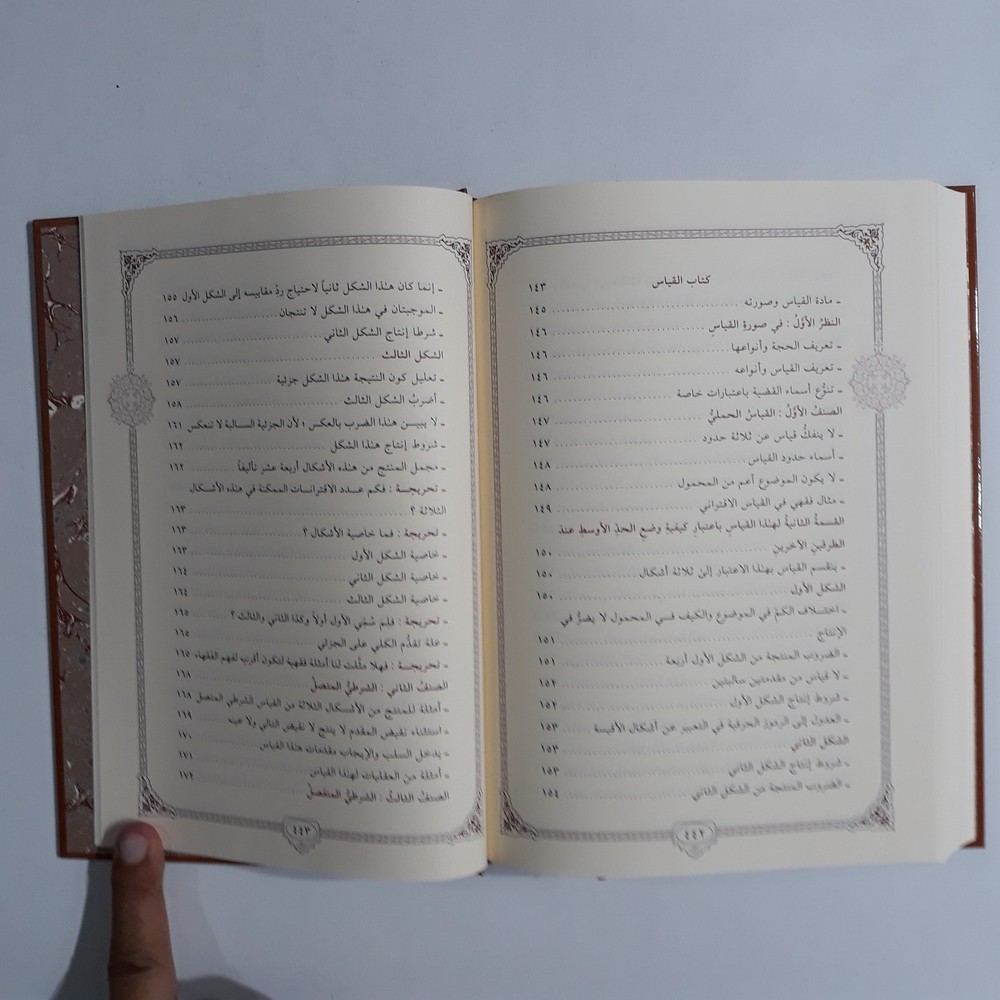 كتاب القياس ١٤٣
ـ مادة القياس وصورته ١٤٥
النظرُ الأوَّلُ : في صورةِ القياسِ ١٤٦
ـ تعريف الحجة وأنواعها ١٤٦
ـ تعريف القياس وأنواعه ١٤٦
ـ تنوُّع أسماء القضية باعتبارات خاصة ١٤٦
الصنفُ الأوَّلُ : القياسُ الحمليُّ ١٤٧
ـ لا ينفكُّ قياس عن ثلاثة حدود ١٤٧
ـ أسماء حدود القياس ١٤٨
ـ لا يكون الموضوع أعم من المحمول ١٤٨
ـ مثال فقهي في القياس الاقتراني ١٤٩
القسمةُ الثانيةُ لهذا القياسِ باعتبارِ كيفيةِ وضعِ الحدِّ الأوسطِ عندَ
الطرفينِ الآخرينِ ١٥٠
ـ ينقسم القياس بهذا الاعتبار إلى ثلاثة أشكال ١٥٠
الشكل الأول ١٥٠
ـ اختلاف الكمِّ في الموضوع والكيف في المحمول لا يضرُّ في
الإنتاج ١٥١
ـ الضروب المنتجة من الشكل الأول أربعة ١٥١
ـ لا قياس من مقدمتين سالبتين ١٥٢
ـ شروط إنتاج الشكل الأول ١٥٢
ـ العدول إلى الرموز الحرفية في التعبير عن أشكال الأقيسة ١٥٣
الشكل الثاني ١٥٣
ـ شروط إنتاج الشكل الثاني ١٥٣
ـ الضروب المنتجة من الشكل الثاني ١٥٤
٤٤٢
ـ إنما كان هذا الشكل ثانياً لاحتياج ردِّ مقاييسه إلى الشكل الأول ١٥٥
ـ الموجبتان في هذا الشكل لا تنتجان ١٥٦
ـ شرطا إنتاج الشكل الثاني ١٥٧
الشكل الثالث ١٥٧
ـ تعليل كون النتيجة هذا الشكل جزئية ١٥٧
ـ أضربُ الشكل الثالث ١٥٨
ـ لا يبيـن هذا الضرب بالعكس ؛ لأن الجزئية السالبة لا تنعكس ١٦١
ـ شروط إنتاج هذا الشكل ١٦٢
ـ مجمل المنتج من هذه الأشكال أربعة عشر تأليفاً ١٦٢
ـ تخريجة : فكم عدد الاقترانات الممكنة في هذه الأشكال
الثلاثة ؟ ١٦٣
ـ تخريجة : فما خاصية الأشكال ؟ ١٦٣
ـ خاصية الشكل الأول ١٦٣
ـ خاصية الشكل الثاني ١٦٤
ـ خاصية الشكل الثالث ١٦٤
ـ تخريجة : فلِمَ سُمِّي الأول أولاً وكذا الثاني والثالث ؟ ١٦٥
ـ علة تقدُّم الكلي على الجزئي ١٦٥
ـ تخريجة : فهلا مثَّلت لنا أمثلة فقهية لتكون أقرب لفهم الفقهاء ١٦٥
الصنفُ الثاني : الشرطيُّ المتصلُ ١٦٨
ـ أمثلة للمنتج من الأشكال الثلاثة من القياس الشرطي المتصل ١٦٨
ـ استثناء نقيض المقدم لا ينتج لا نقيض التالي ولا عينه ١٦٩
ـ يدخل السلب والإيجاب مقدمات هذا القياس ١٧٠
ـ أمثلة من العقليات لهذا القياس ١٧١
الصنفُ الثالثُ : الشرطيُّ المنفصلُ ١٧٢
٤٤٣